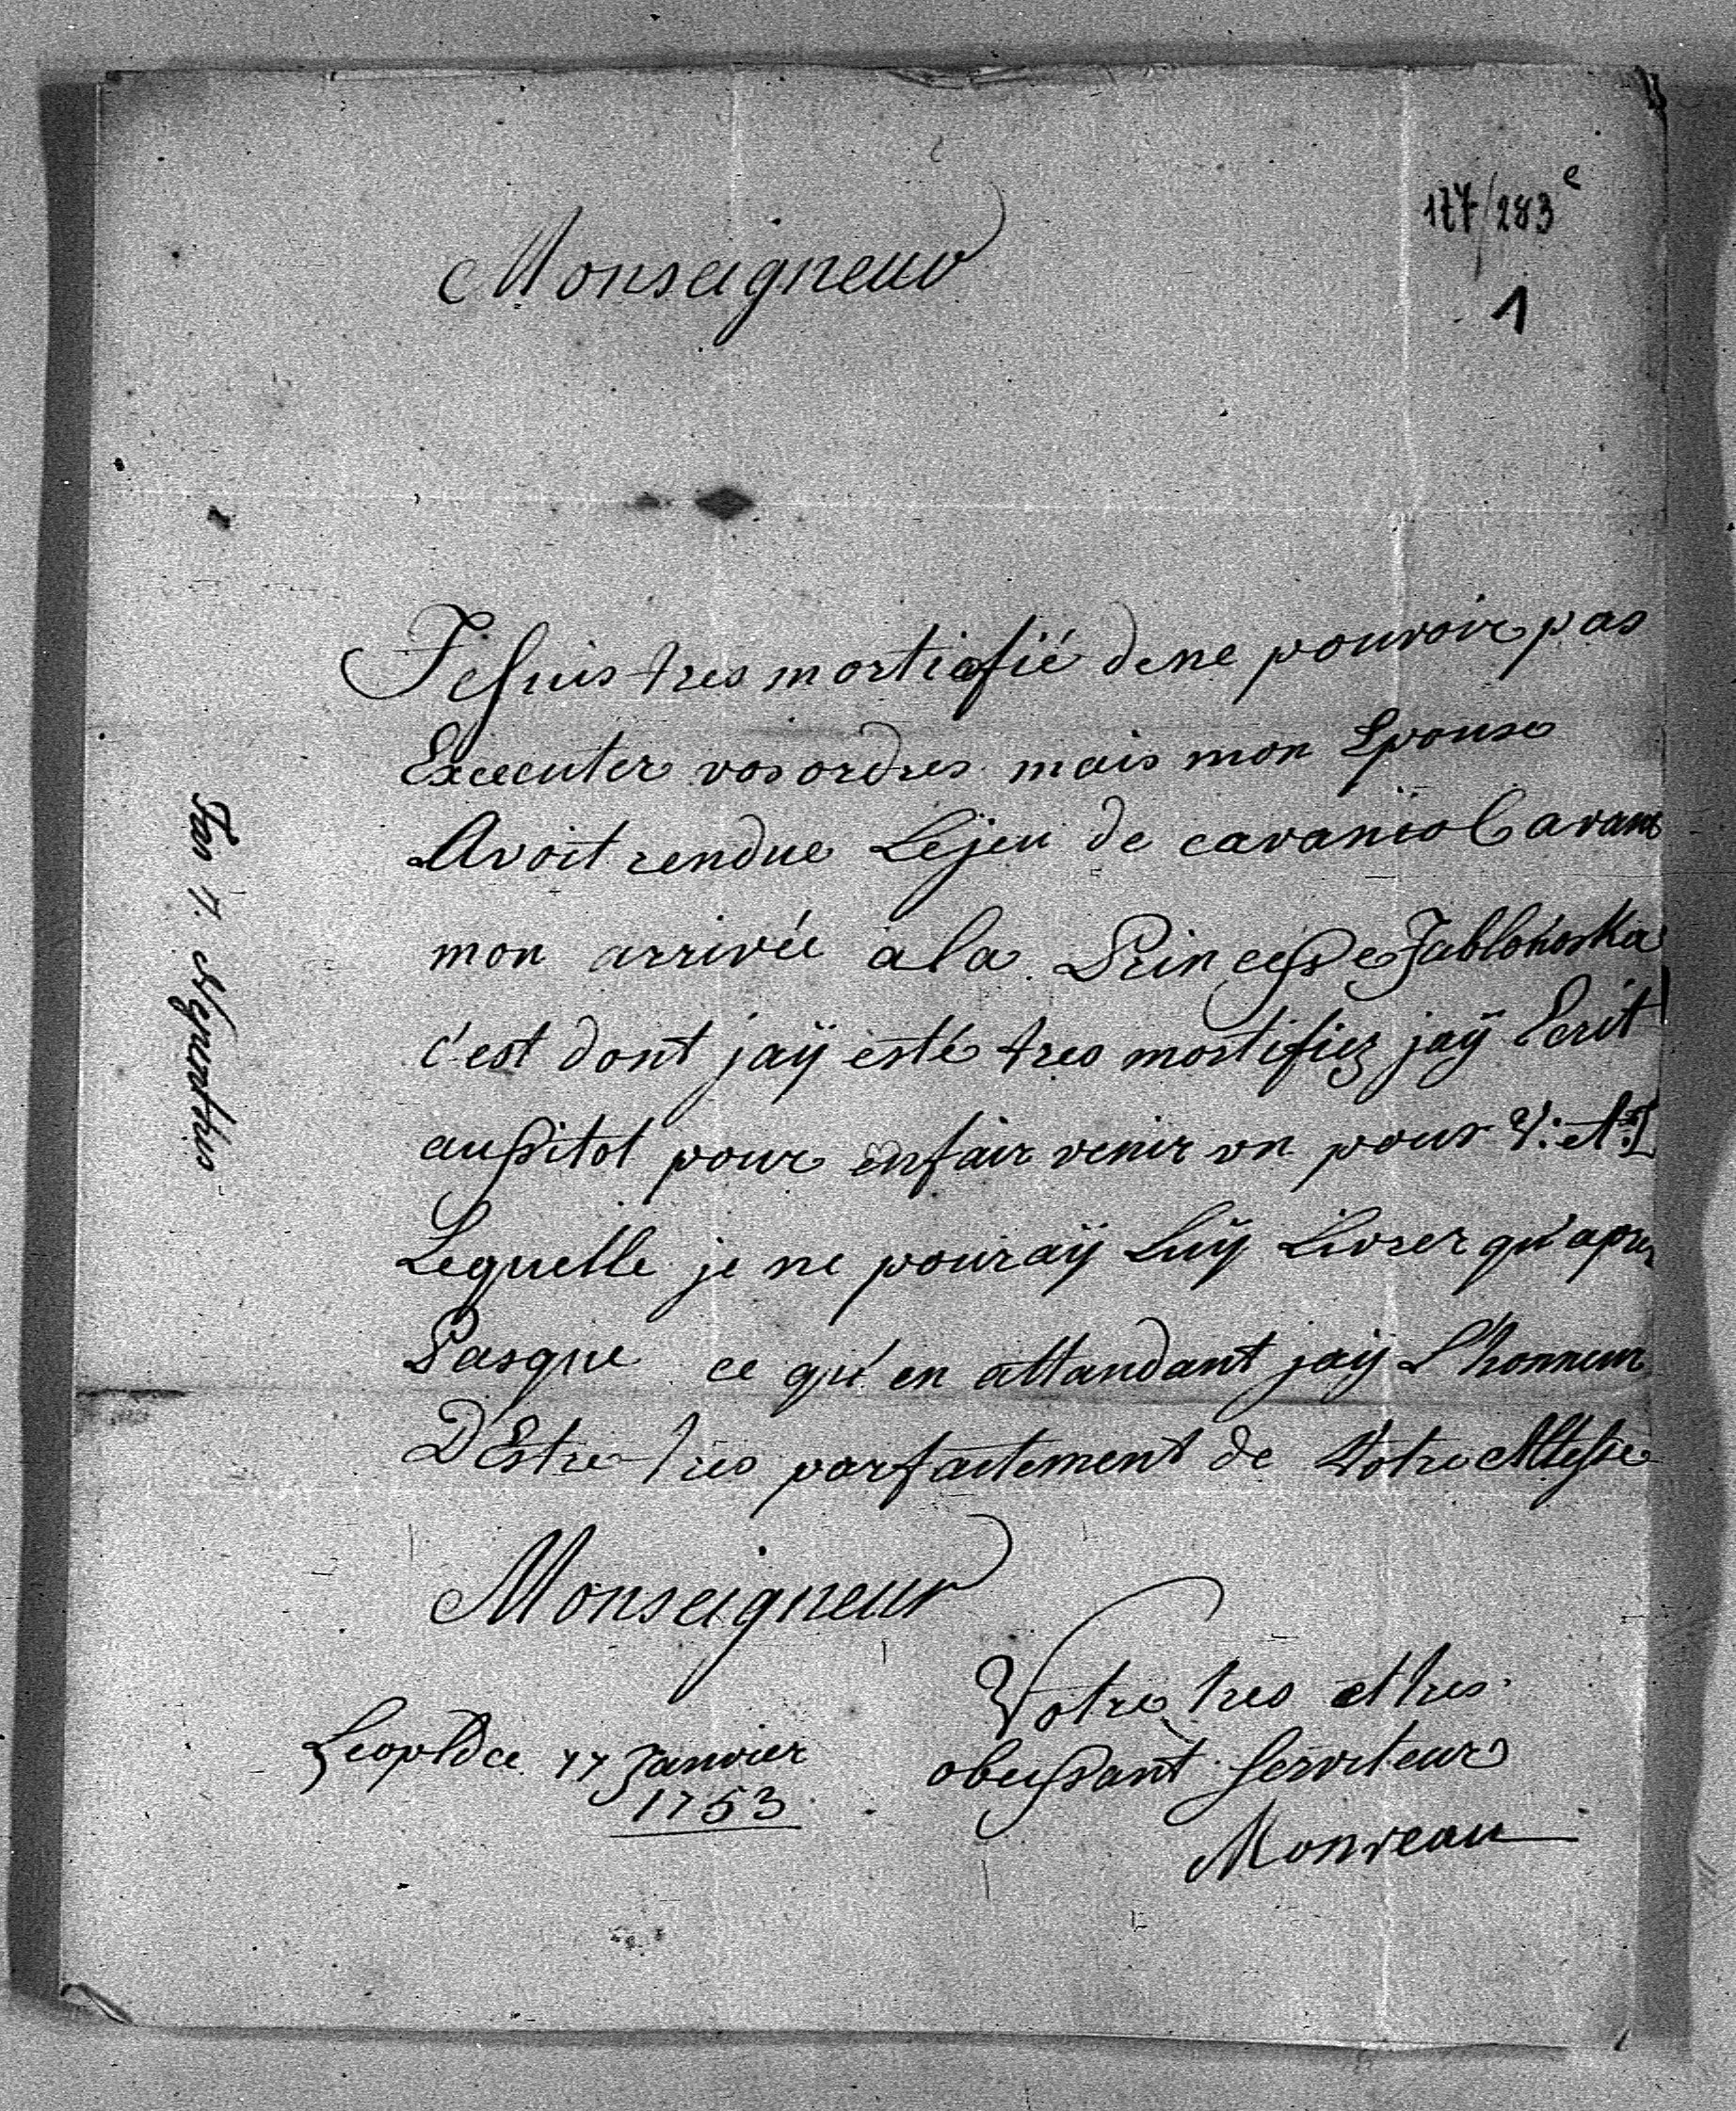 177/283 e
1
Monseigneur
Je suis tres mortiafié de ne pouvoir pas
Excecuter vos ordres mais mon Epouse
Avoit rendue Le jeu de cavaniol avant
mon arrivée a la Princesse Jablonoska
c'est dont jaÿ esté tres mortifiez jaÿ Ecrit
aussitot pour en fair venir un pour V: A:
Lequelle je ne pouraÿ Luÿ Livrer qu'apres
Pasque ce qu'en attandant jaÿ L'honneur
D'Estre tres parfaitement de Votre Altesse
Monseigneur
Votre tres et tres
obeissant serviteur
Monreau
Leopold ce 17 Janvier
1753